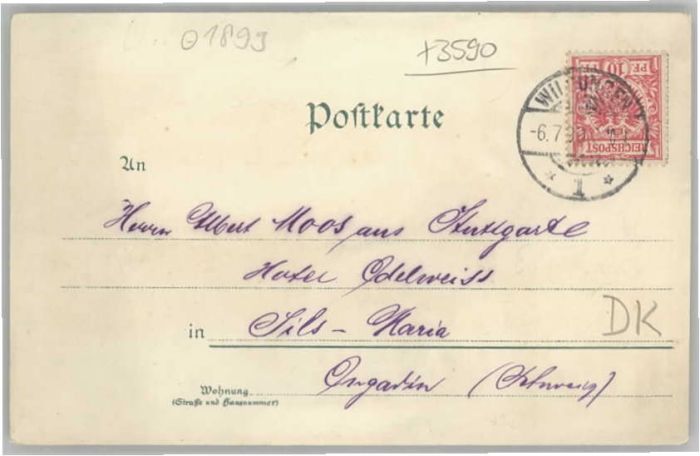 ⊙1899
+3590
Postkarte
PF 10 PF
REICHSPOST
WILDUNGEN
-6.7.99
* 1 *
An
Herrn Albert Moos aus Stuttgart
Hotel Edelweiss
in Sils-Maria
DK
Engadin (Schweiz)
Wohnung
(Straße und Hausnummer)